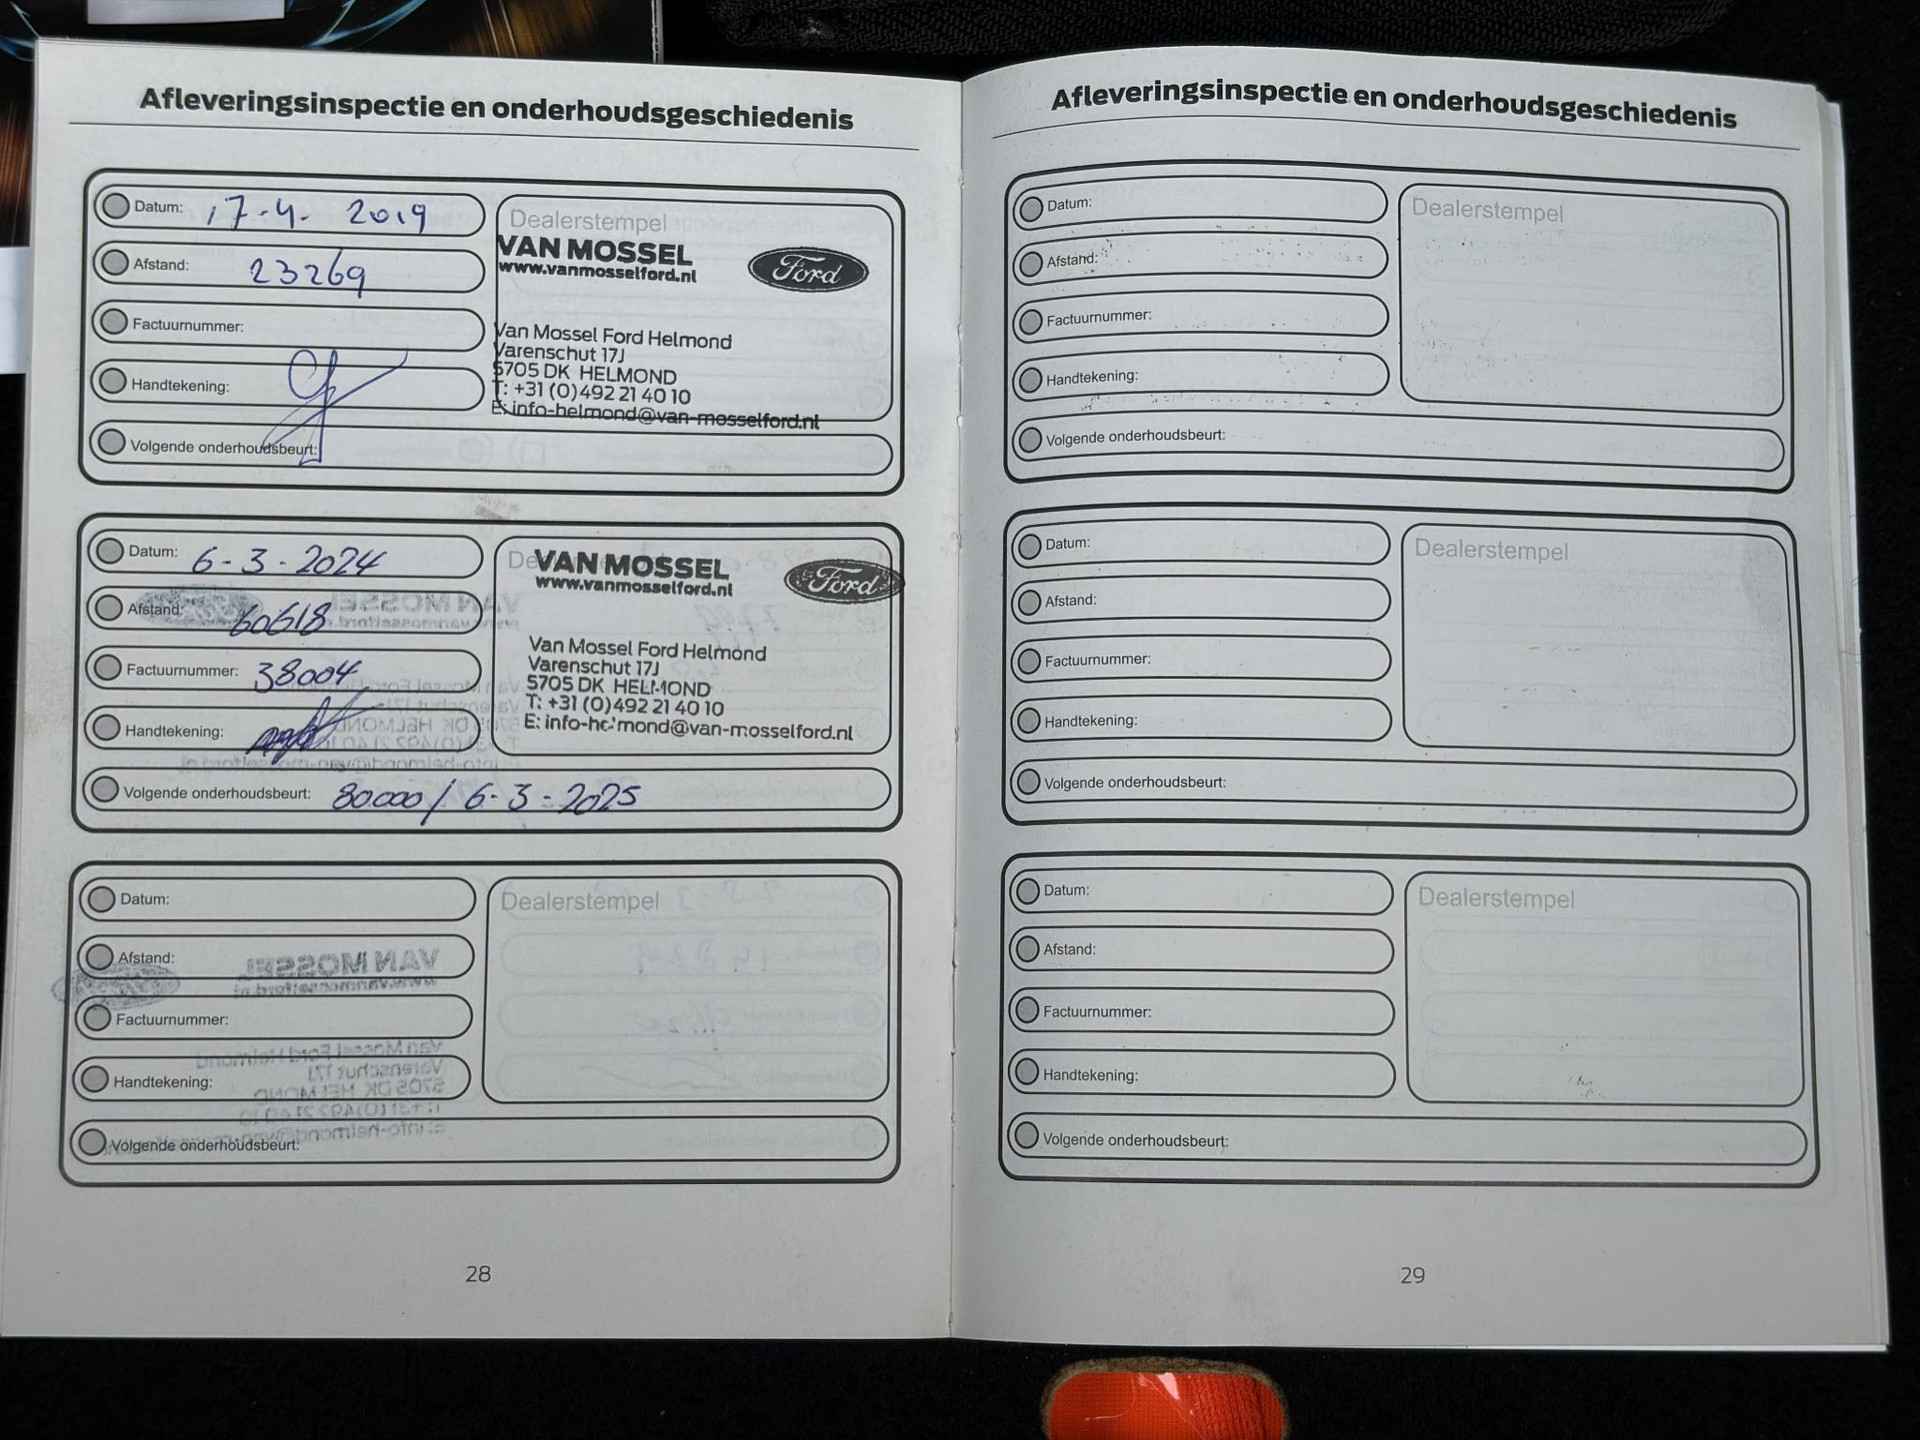 Afleveringsinspectie en onderhoudsgeschiedenis
Datum: 17-4-2019
Afstand: 23269
Factuurnummer:
Handtekening:
Volgende onderhoudsbeurt:
Dealerstempel
VAN MOSSEL
www.vanmosselford.nl
Ford
Van Mossel Ford Helmond
Varenschut 17J
5705 DK HELMOND
T: +31 (0)492 21 40 10
E: info-helmond@van-mosselford.nl
Datum: 6-3-2024
Afstand: 60618
Factuurnummer: 38004
Handtekening:
Volgende onderhoudsbeurt: 80000 / 6-3-2025
VAN MOSSEL
www.vanmosselford.nl
Ford
Van Mossel Ford Helmond
Varenschut 17J
5705 DK HELMOND
T: +31 (0)492 21 40 10
E: info-helmond@van-mosselford.nl
Datum:
Afstand:
Factuurnummer:
Handtekening:
Volgende onderhoudsbeurt:
Dealerstempel
28
Afleveringsinspectie en onderhoudsgeschiedenis
Datum:
Afstand:
Factuurnummer:
Handtekening:
Volgende onderhoudsbeurt:
Dealerstempel
Datum:
Afstand:
Factuurnummer:
Handtekening:
Volgende onderhoudsbeurt:
Dealerstempel
Datum:
Afstand:
Factuurnummer:
Handtekening:
Volgende onderhoudsbeurt:
Dealerstempel
29